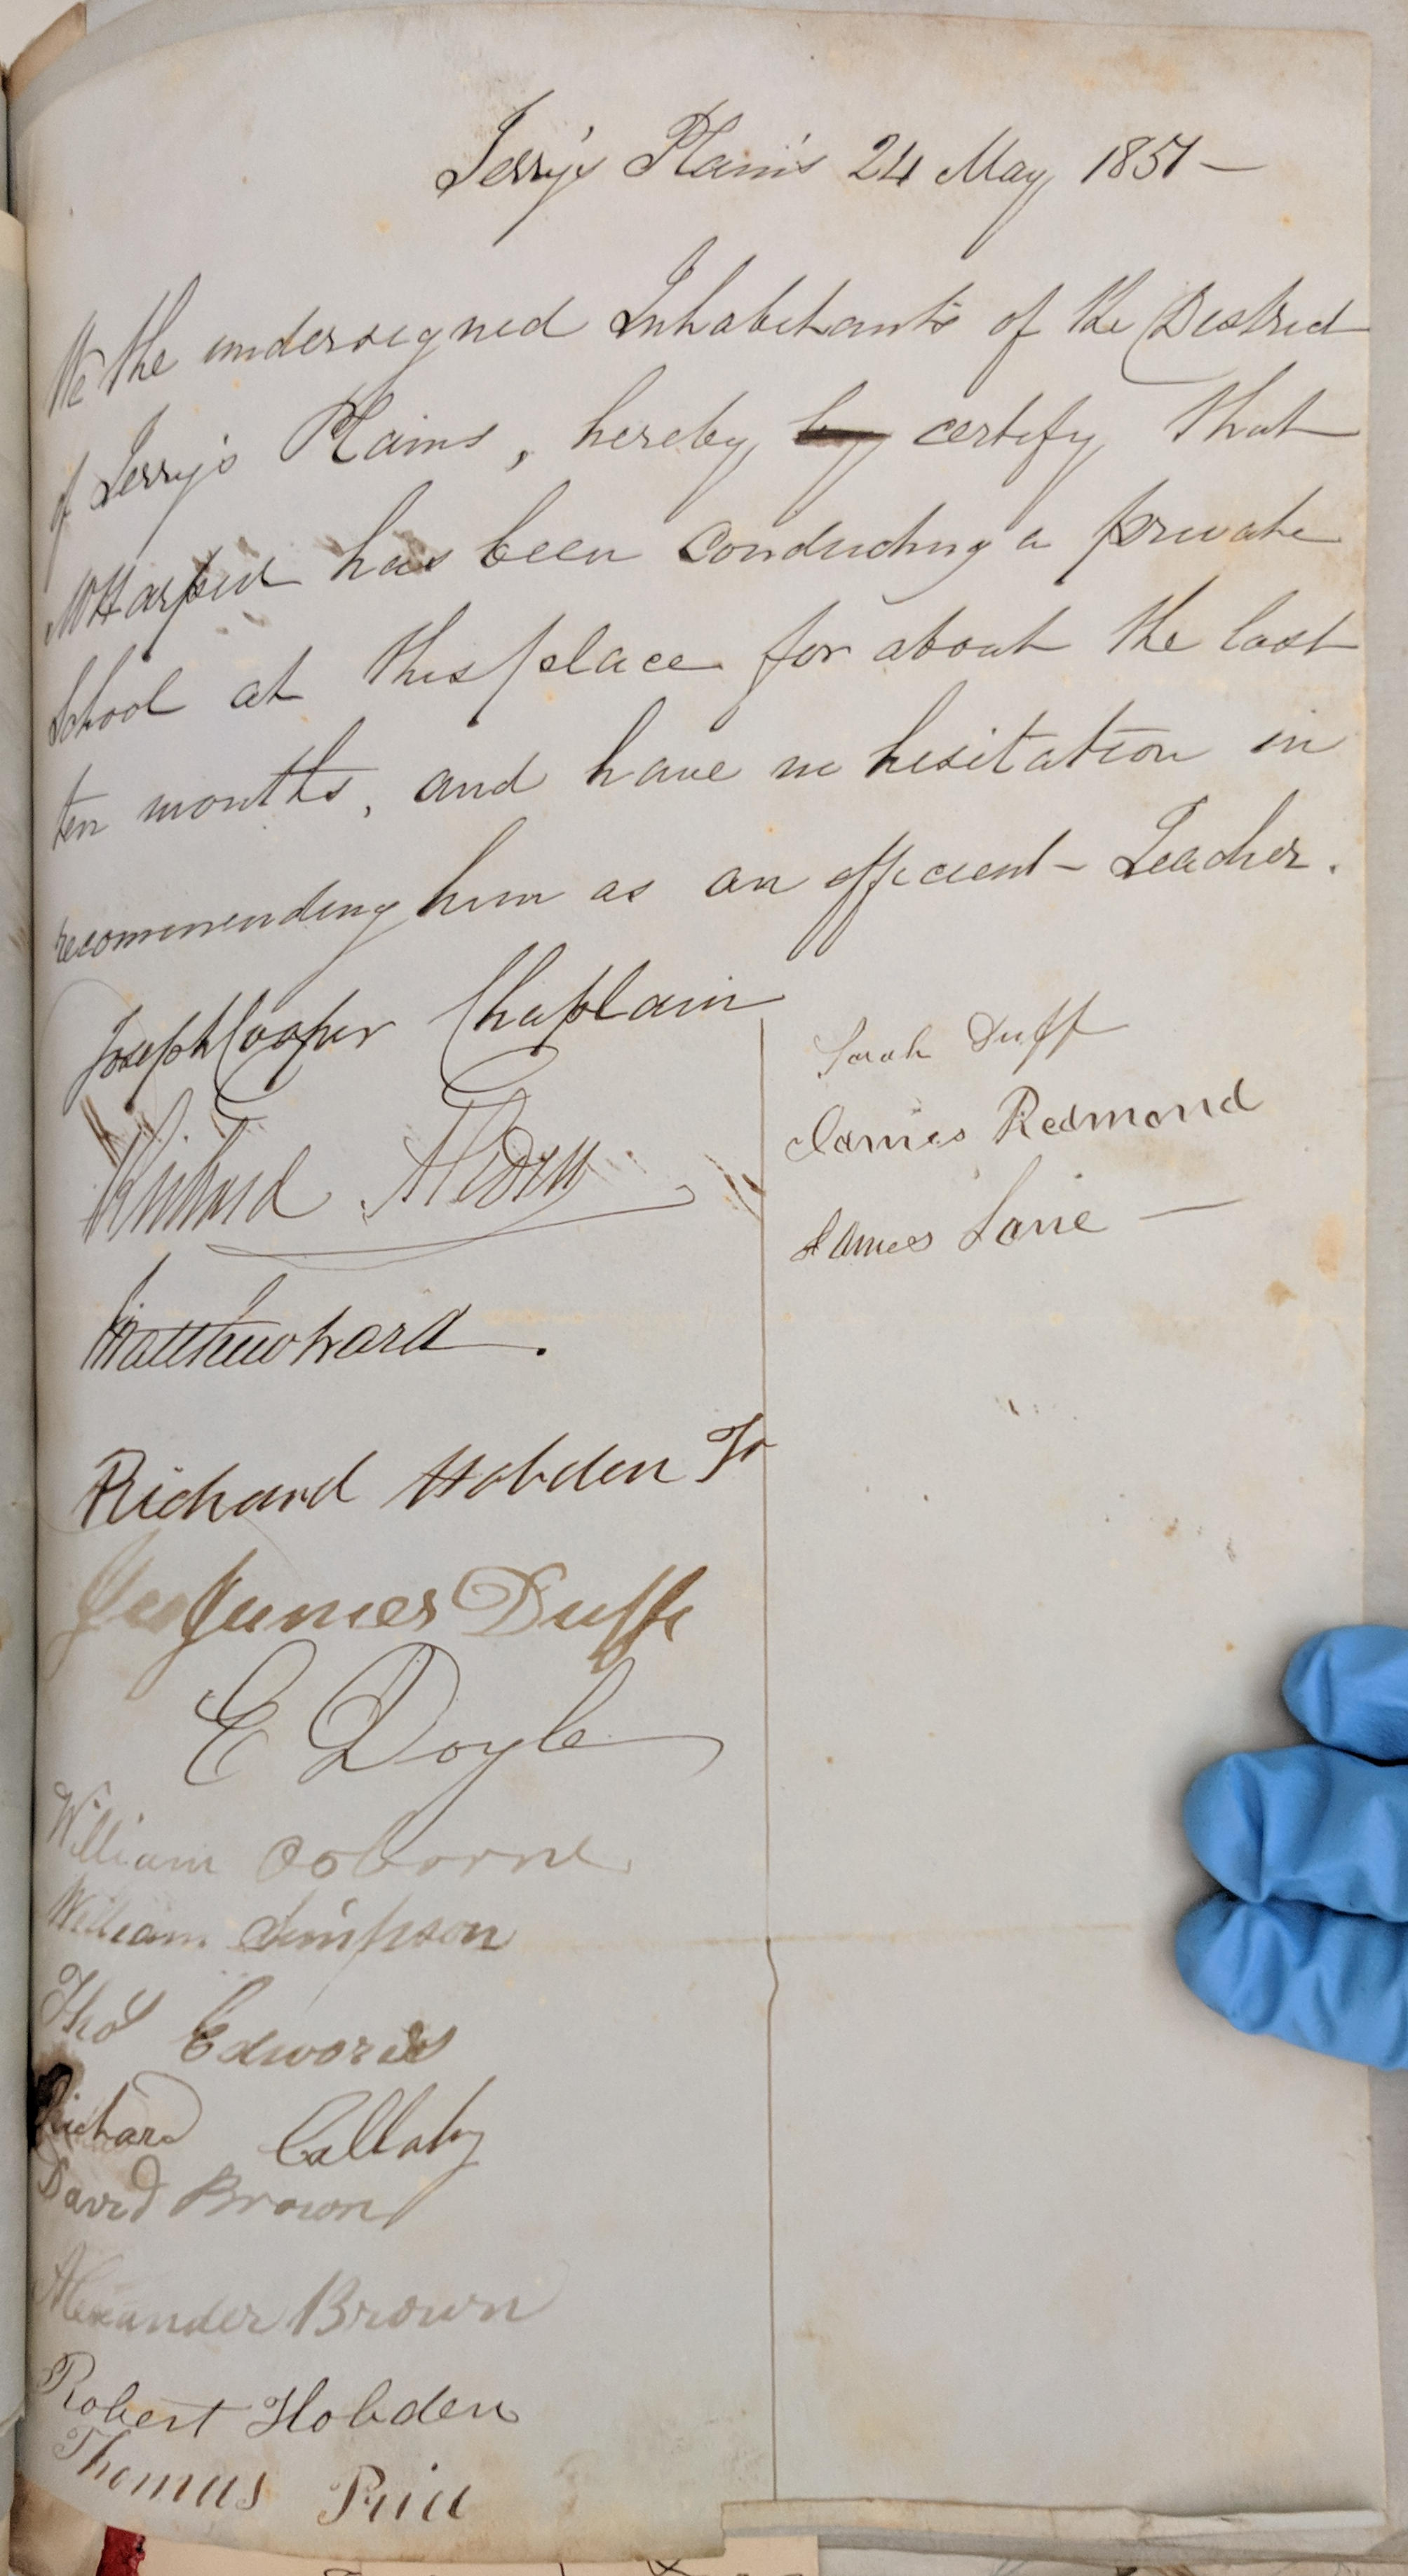 Jerry's Plains 24 May 1857 —
We the undersigned Inhabitants of the District
of Jerry's Plains, hereby by certify that
Mr Harpur has been conducting a private
School at this place for about the last
ten months, and have no hesitation in
recommending him as an efficient Teacher.
Joseph Cooper Chaplain
Richard
Matthew Ward.
Richard Hobden Jr
James Duff
E Doyle
William Osborne
William Simpson
Thos Edwards
Richard Callaby
David Brown
Alexander Brown
Robert Hobden
Thomas Price
Sarah Duff
James Redmond
James Lane —